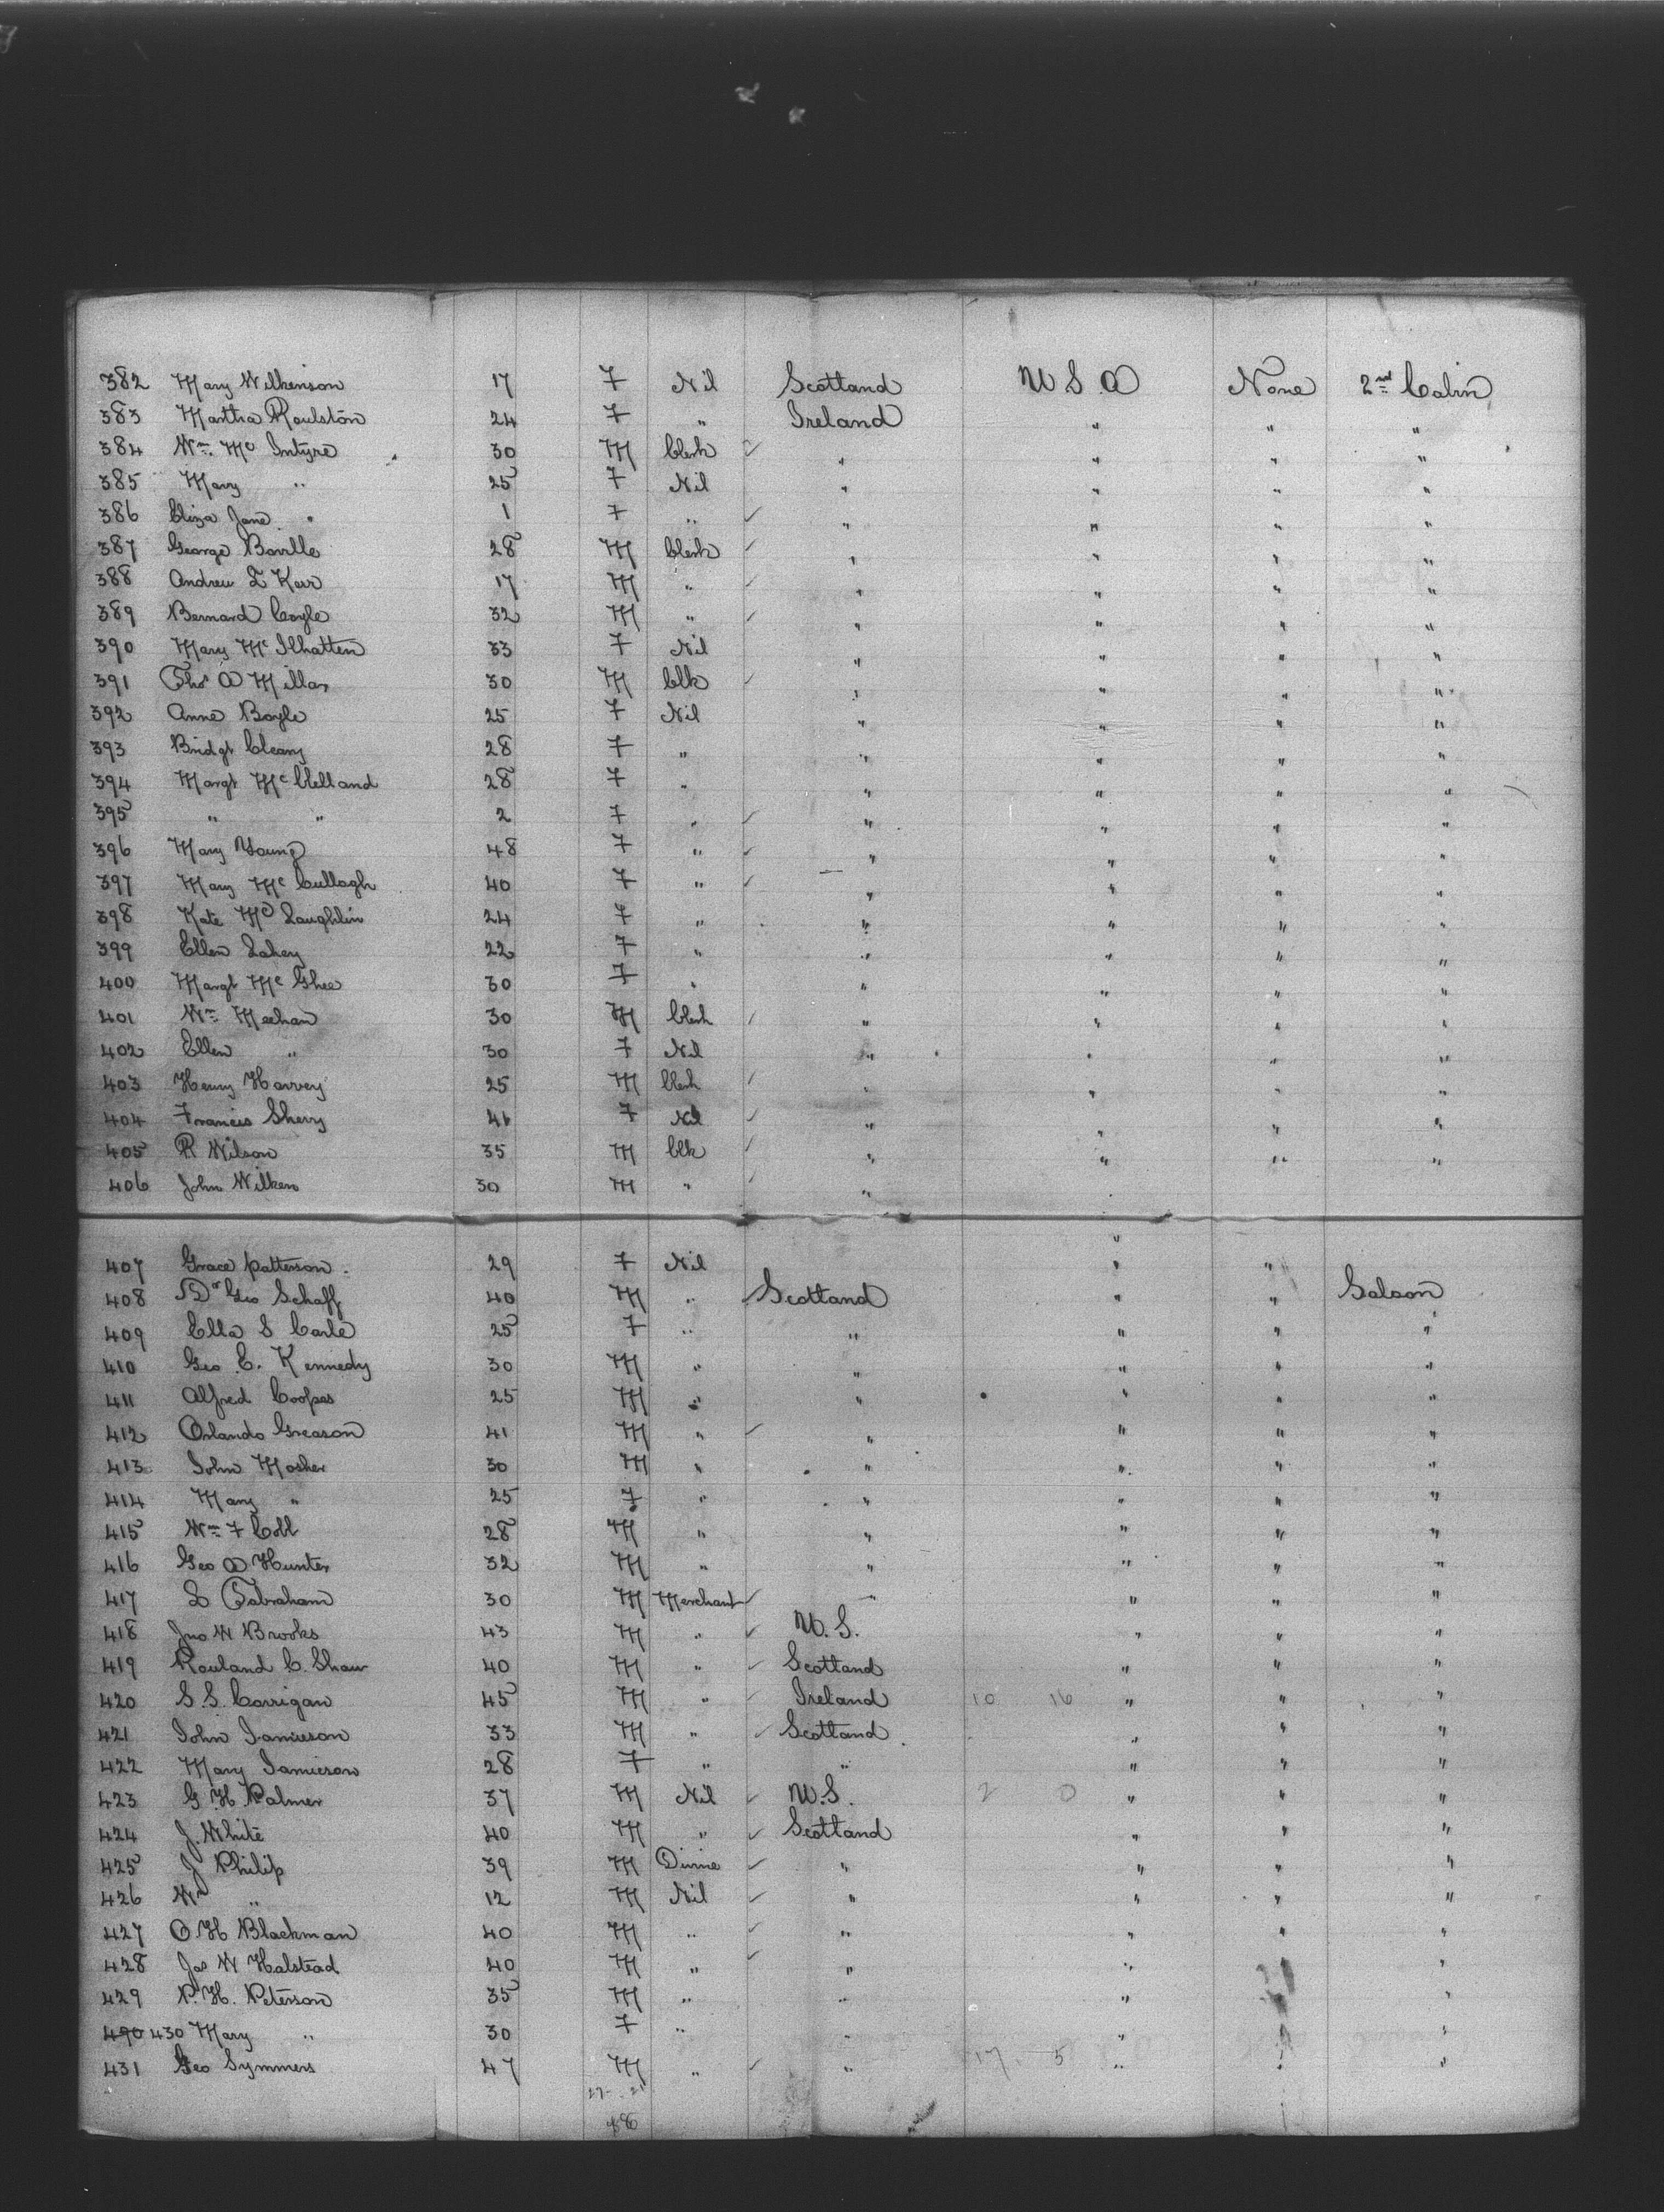 382 Mary Wilkinson 17 F Nil Scotland U S A None 2nd Cabin
383 Martha Roulston 24 F " Ireland " " "
384 Wm. Mc Intyre 30 M Clerk " " " "
385 Mary " 25 F Nil " " " "
386 Eliza Jane " 1 F " " " " "
387 George Boville 28 M Clerk " " " "
388 Andrew L Kerr 17 M " " " " "
389 Bernard Coyle 32 M " " " " "
390 Mary Mc Ilhatten 33 F Nil " " " "
391 Thos A Millar 30 M Clk " " " "
392 Anne Boyle 25 F Nil " " " "
393 Bridgt Cleary 28 F " " " " "
394 Margt Mc Clelland 28 F " " " " "
395 " " 2 F " " " " "
396 Mary Young 48 F " " " " "
397 Mary Mc Cullagh 40 F " " " " "
398 Kate Mc Laughlin 24 F " " " " "
399 Ellen Lahey 22 F " " " " "
400 Margt Mc Ghee 30 F " " " " "
401 Wm Meehan 30 M Clerk " " " "
402 Ellen " 30 F Nil " " " "
403 Henry Harvey 25 M Clerk " " " "
404 Francis Sherry F Nil " " " "
405 R Wilson 35 M Clk " " " "
406 John Wilken 30 M " "
407 Grace Patterson 29 F Nil " "
408 Dr Geo Schaff 40 M " Scotland " " Saloon
409 Ella S Carle 25 F " " " " "
410 Geo. C. Kennedy 30 M " " " " "
411 Alfred Cooper 25 M " " " " "
412 Orlando Greason 41 M " " " " "
413 John Mosher 30 M " " " " "
414 Mary " 25 F " " " " "
415 Wm F Coll 28 M " " " " "
416 Geo A Hunter 32 M " " " " "
417 30 M Merchant " " " "
418 Jno W Brooks 43 M " U.S. " " "
419 Rouland C. Shaw 40 M " Scotland " " "
420 S.S. Corrigan 45 M " Ireland 10 16 " " "
421 John Jamieson 33 M " Scotland " " "
422 Mary Jamieson 28 F " " " " "
423 G H Palmer 37 M Nil U.S. 2 0 " " "
424 J. White 40 M " Scotland " " "
425 J Philip 39 M Divine " " " "
426 Wm " 12 M Nil " " " "
427 O H Blackman 40 M " " " " "
428 Jas W Halstead 40 M " " " " "
429 P. H. Peterson 35 M " " " " "
490 430 Mary " 30 F " " " " "
431 Geo Symmers 47 M " " 17 5 " " "